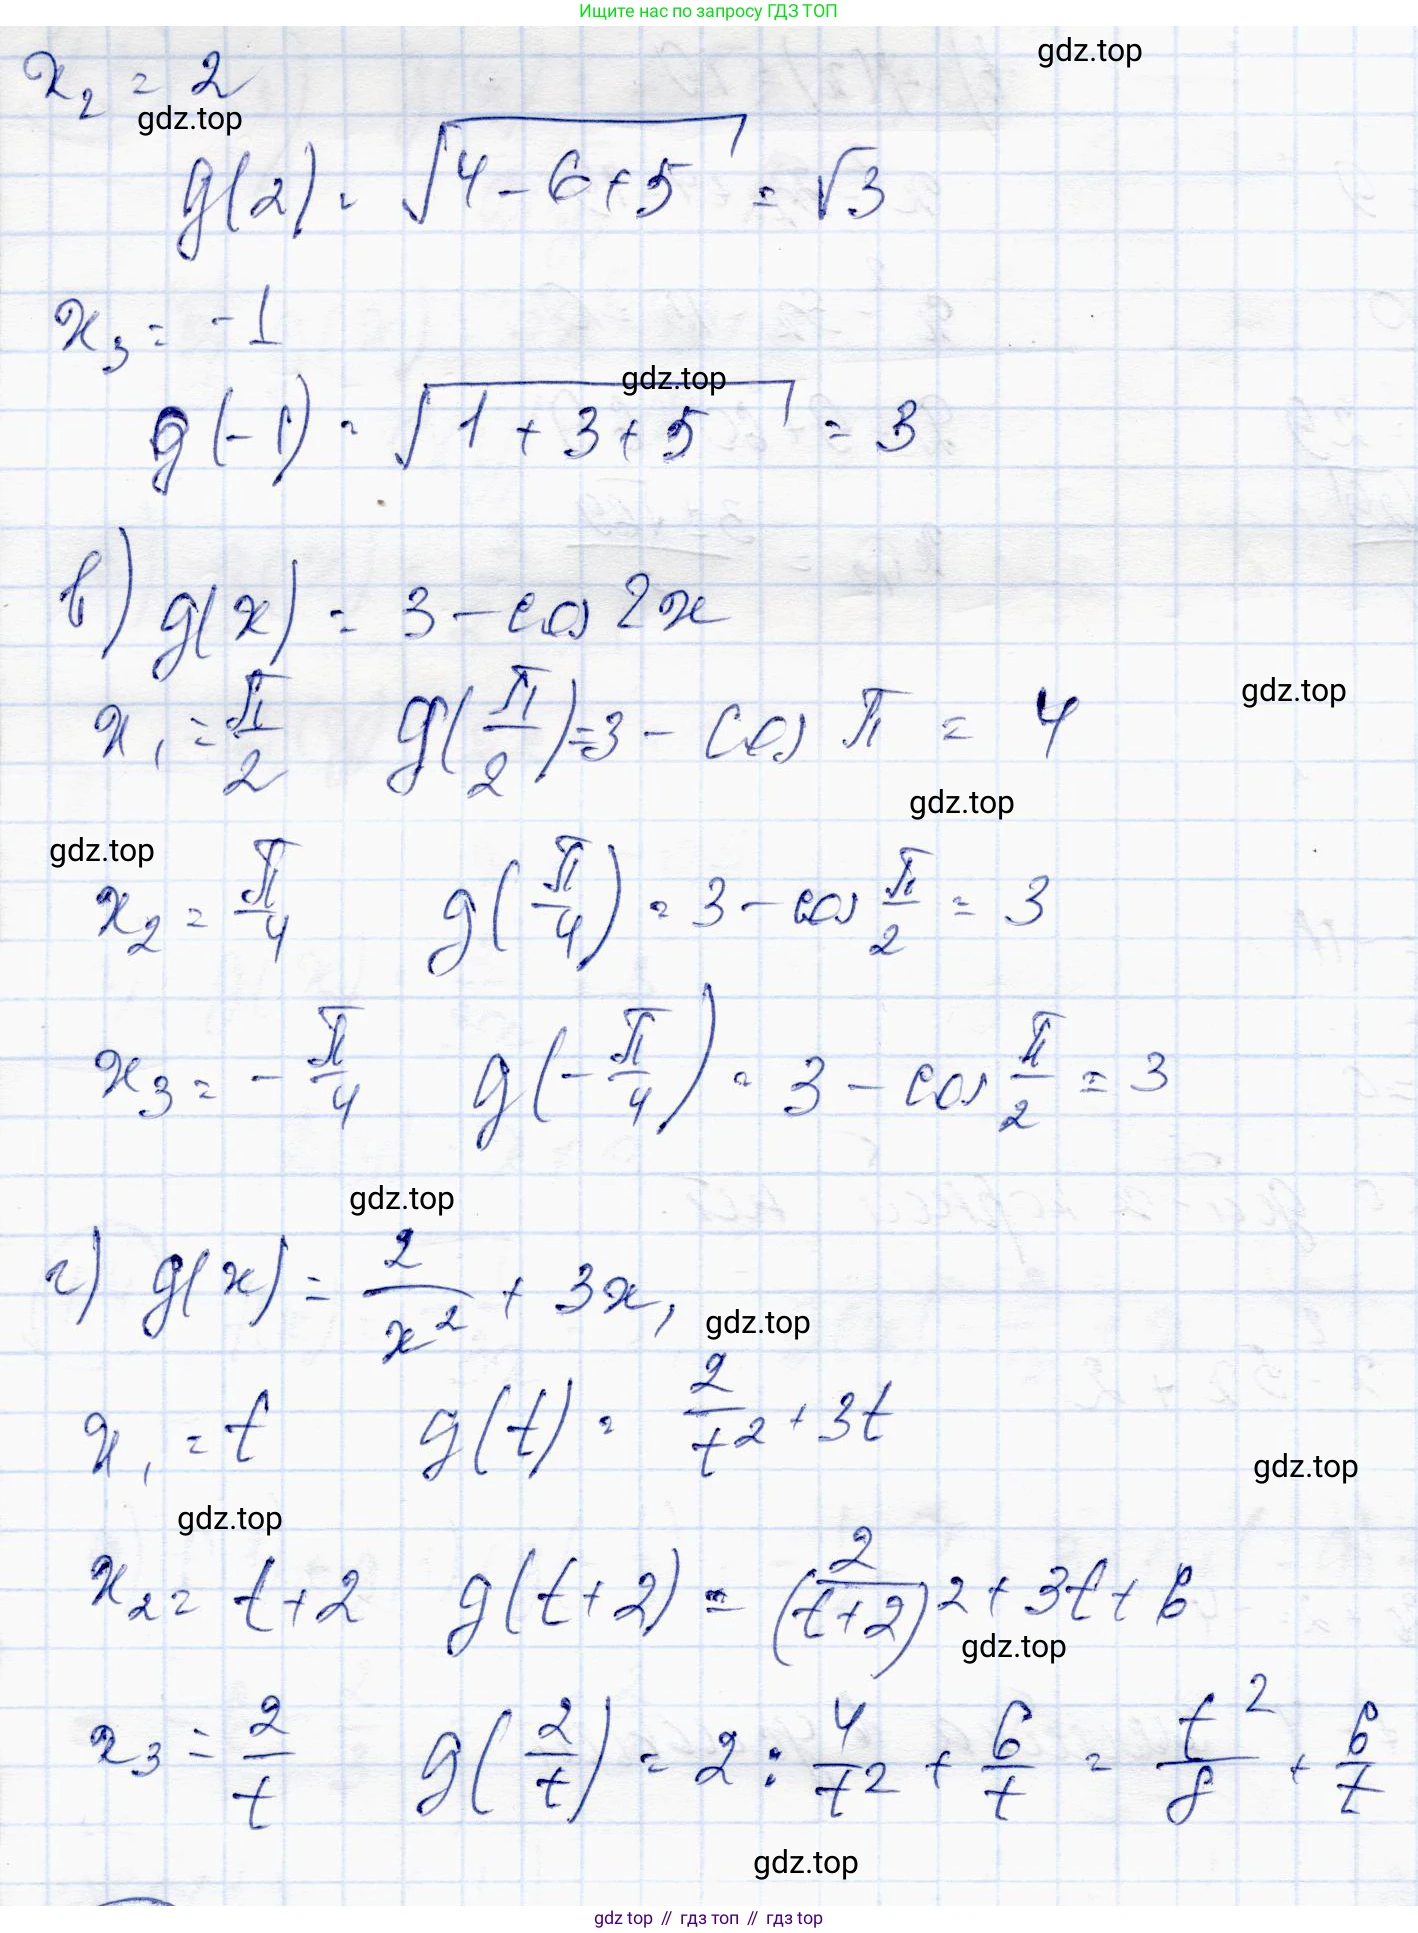 Ищите нас по запросу ГДЗ ТОП
gdz.top
x₂ = 2
gdz.top
g(2) = √(4 - 6 + 5) = √3
x₃ = -1
gdz.top
g(-1) = √(1 + 3 + 5) = 3
в) g(x) = 3 - cos 2x
gdz.top
x₁ = π/2 g(π/2) = 3 - cos π = 4
gdz.top
gdz.top
x₂ = π/4 g(π/4) = 3 - cos π/2 = 3
x₃ = -π/4 g(-π/4) = 3 - cos π/2 = 3
gdz.top
г) g(x) = 2/x² + 3x,
gdz.top
x₁ = t g(t) = 2/t² + 3t
gdz.top
gdz.top
x₂ = t+2 g(t+2) = 2/(t+2)² + 3t + 6
gdz.top
x₃ = 2/t g(2/t) = 2 : 4/t² + 6/t = t²/8 + 6/t
gdz.top
gdz top // гдз топ // гдз top